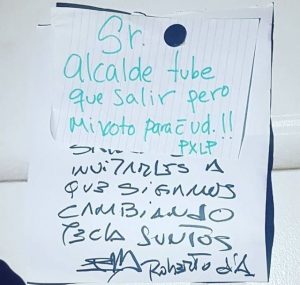 Sr.
alcalde tube
que salir pero
mi voto para ud.!!
PXLP
invitarles a
que sigamos
cambiando
Tecla juntos
Roberto d'A